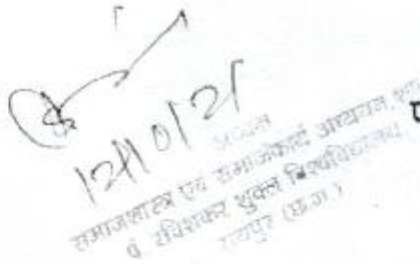 अध्यक्ष
समाजशास्त्र एवं समाजकार्य अध्ययन
पं. रविशंकर शुक्ल विश्वविद्यालय
रायपुर (छ.ग.)